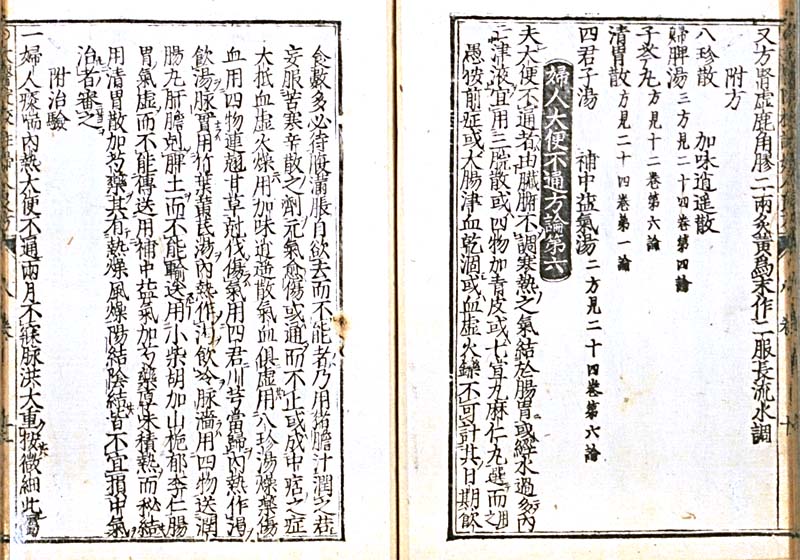 又方腎虛鹿角膠二兩炙黃爲末作二服長流水調
附方
八珍散 加味逍遥散
歸脾湯 三方見二十四卷第四論
子芩丸 方見十二卷第六論
清胃散 方見二十四卷第一論
四君子湯 補中益氣湯 二方見二十四卷第六論
婦人大便不通方論第六
夫大便不通者由臟腑不調寒熱之氣結於腸胃或經水過多內
津液宜用三脘散或四物加青皮或七宣丸麻仁丸選而用之
愚按前症或大腸津血乾涸或血虛火爍不可計其日期飲
食數多必待腹滿脹自欲去而不能者乃用猪膽汁潤之若
妄服苦寒辛散之劑元氣愈傷或通而不止或成中痞之症
大抵血虛火燥用加味逍遥散氣血俱虛用八珍湯燥藥傷
血用四物連翹甘草剋伐傷氣用四君川芎當歸內熱作渴
飲湯脉實用竹葉黃芪湯內熱作渴飲冷脉濇用四物送潤
腸丸肝膽剋脾土而不能輸送用小柴胡加山梔郁李仁腸
胃氣虛而不能傳送用補中益氣加芍藥厚朴積熱而秘結
用清胃散加芍藥其有熱燥風燥陽結陰結皆不宜損中氣
治者審之
附治驗
一婦人痰喘內熱大便不通兩月不寐脉洪大重按微細此屬